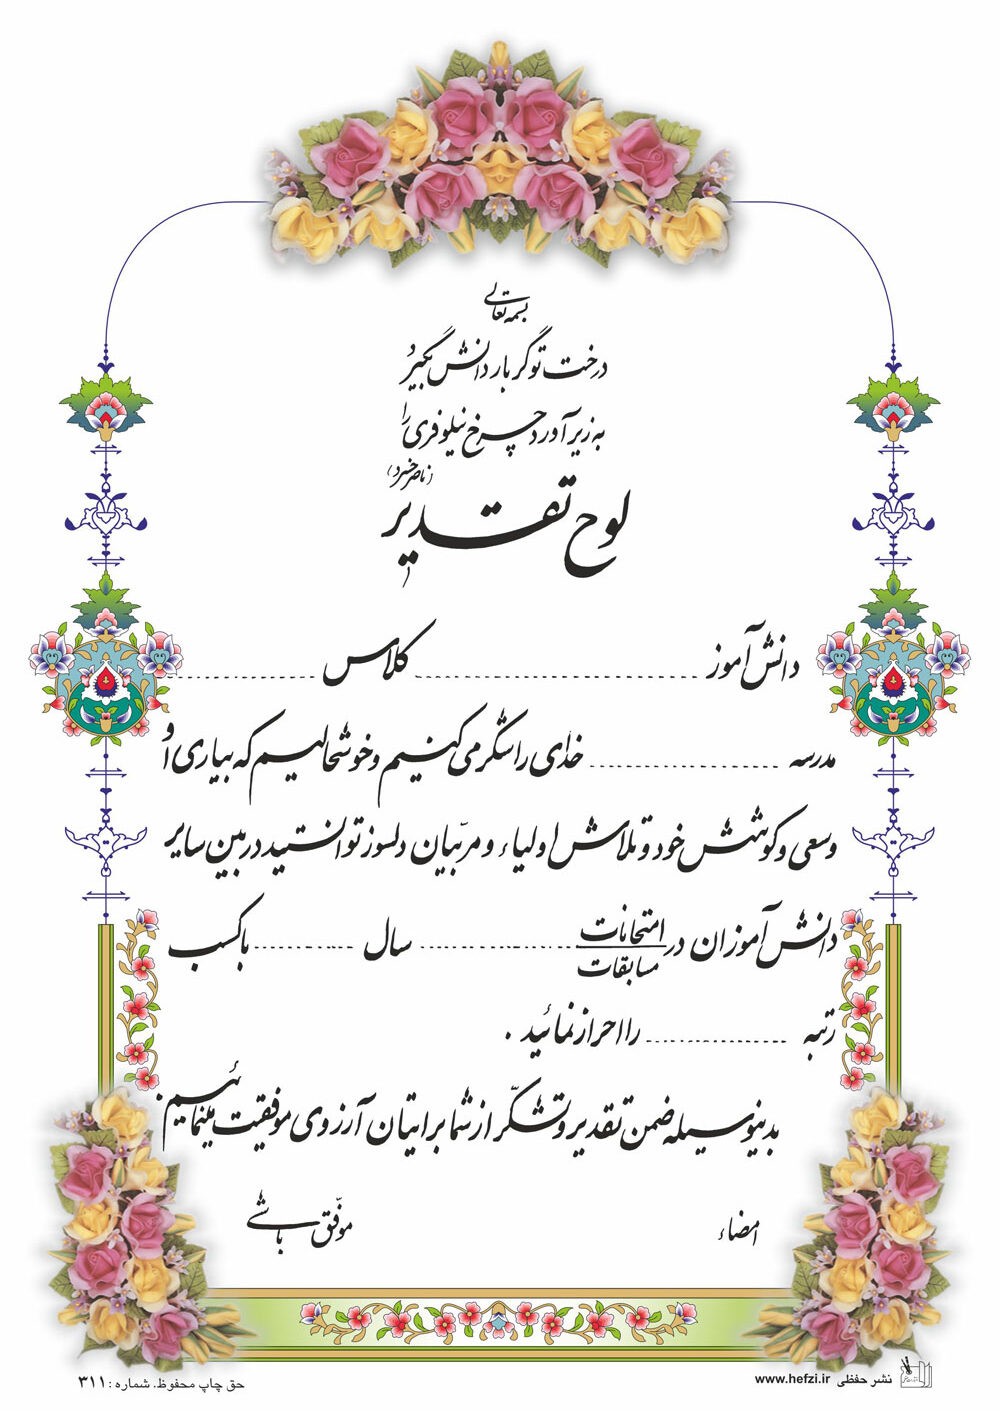 بسمه تعالی
درخت تو گر بار دانش بگیرد
به زیر آورد چرخ نیلوفری را
(ناصر خسرو)
لوح تقدیر
دانش آموز .................... کلاس ....................
مدرسه .................... خدای را شکر می کنیم و خوشحالیم که بیاری او
وسعی و کوشش خود و تلاش اولیاء و مربّیان دلسوز توانستید در بین سایر
دانش آموزان در امتحانات .................... سال .................... با کسب
مسابقات
رتبه .................... را احراز نمائید .
بدینوسیله ضمن تقدیر و تشکّر از شما برایتان آرزوی موفقیت مینمائیم .
امضاء
موفّق باشی
نشر حفظی www.hefzi.ir
حق چاپ محفوظ. شماره : ۳۱۱